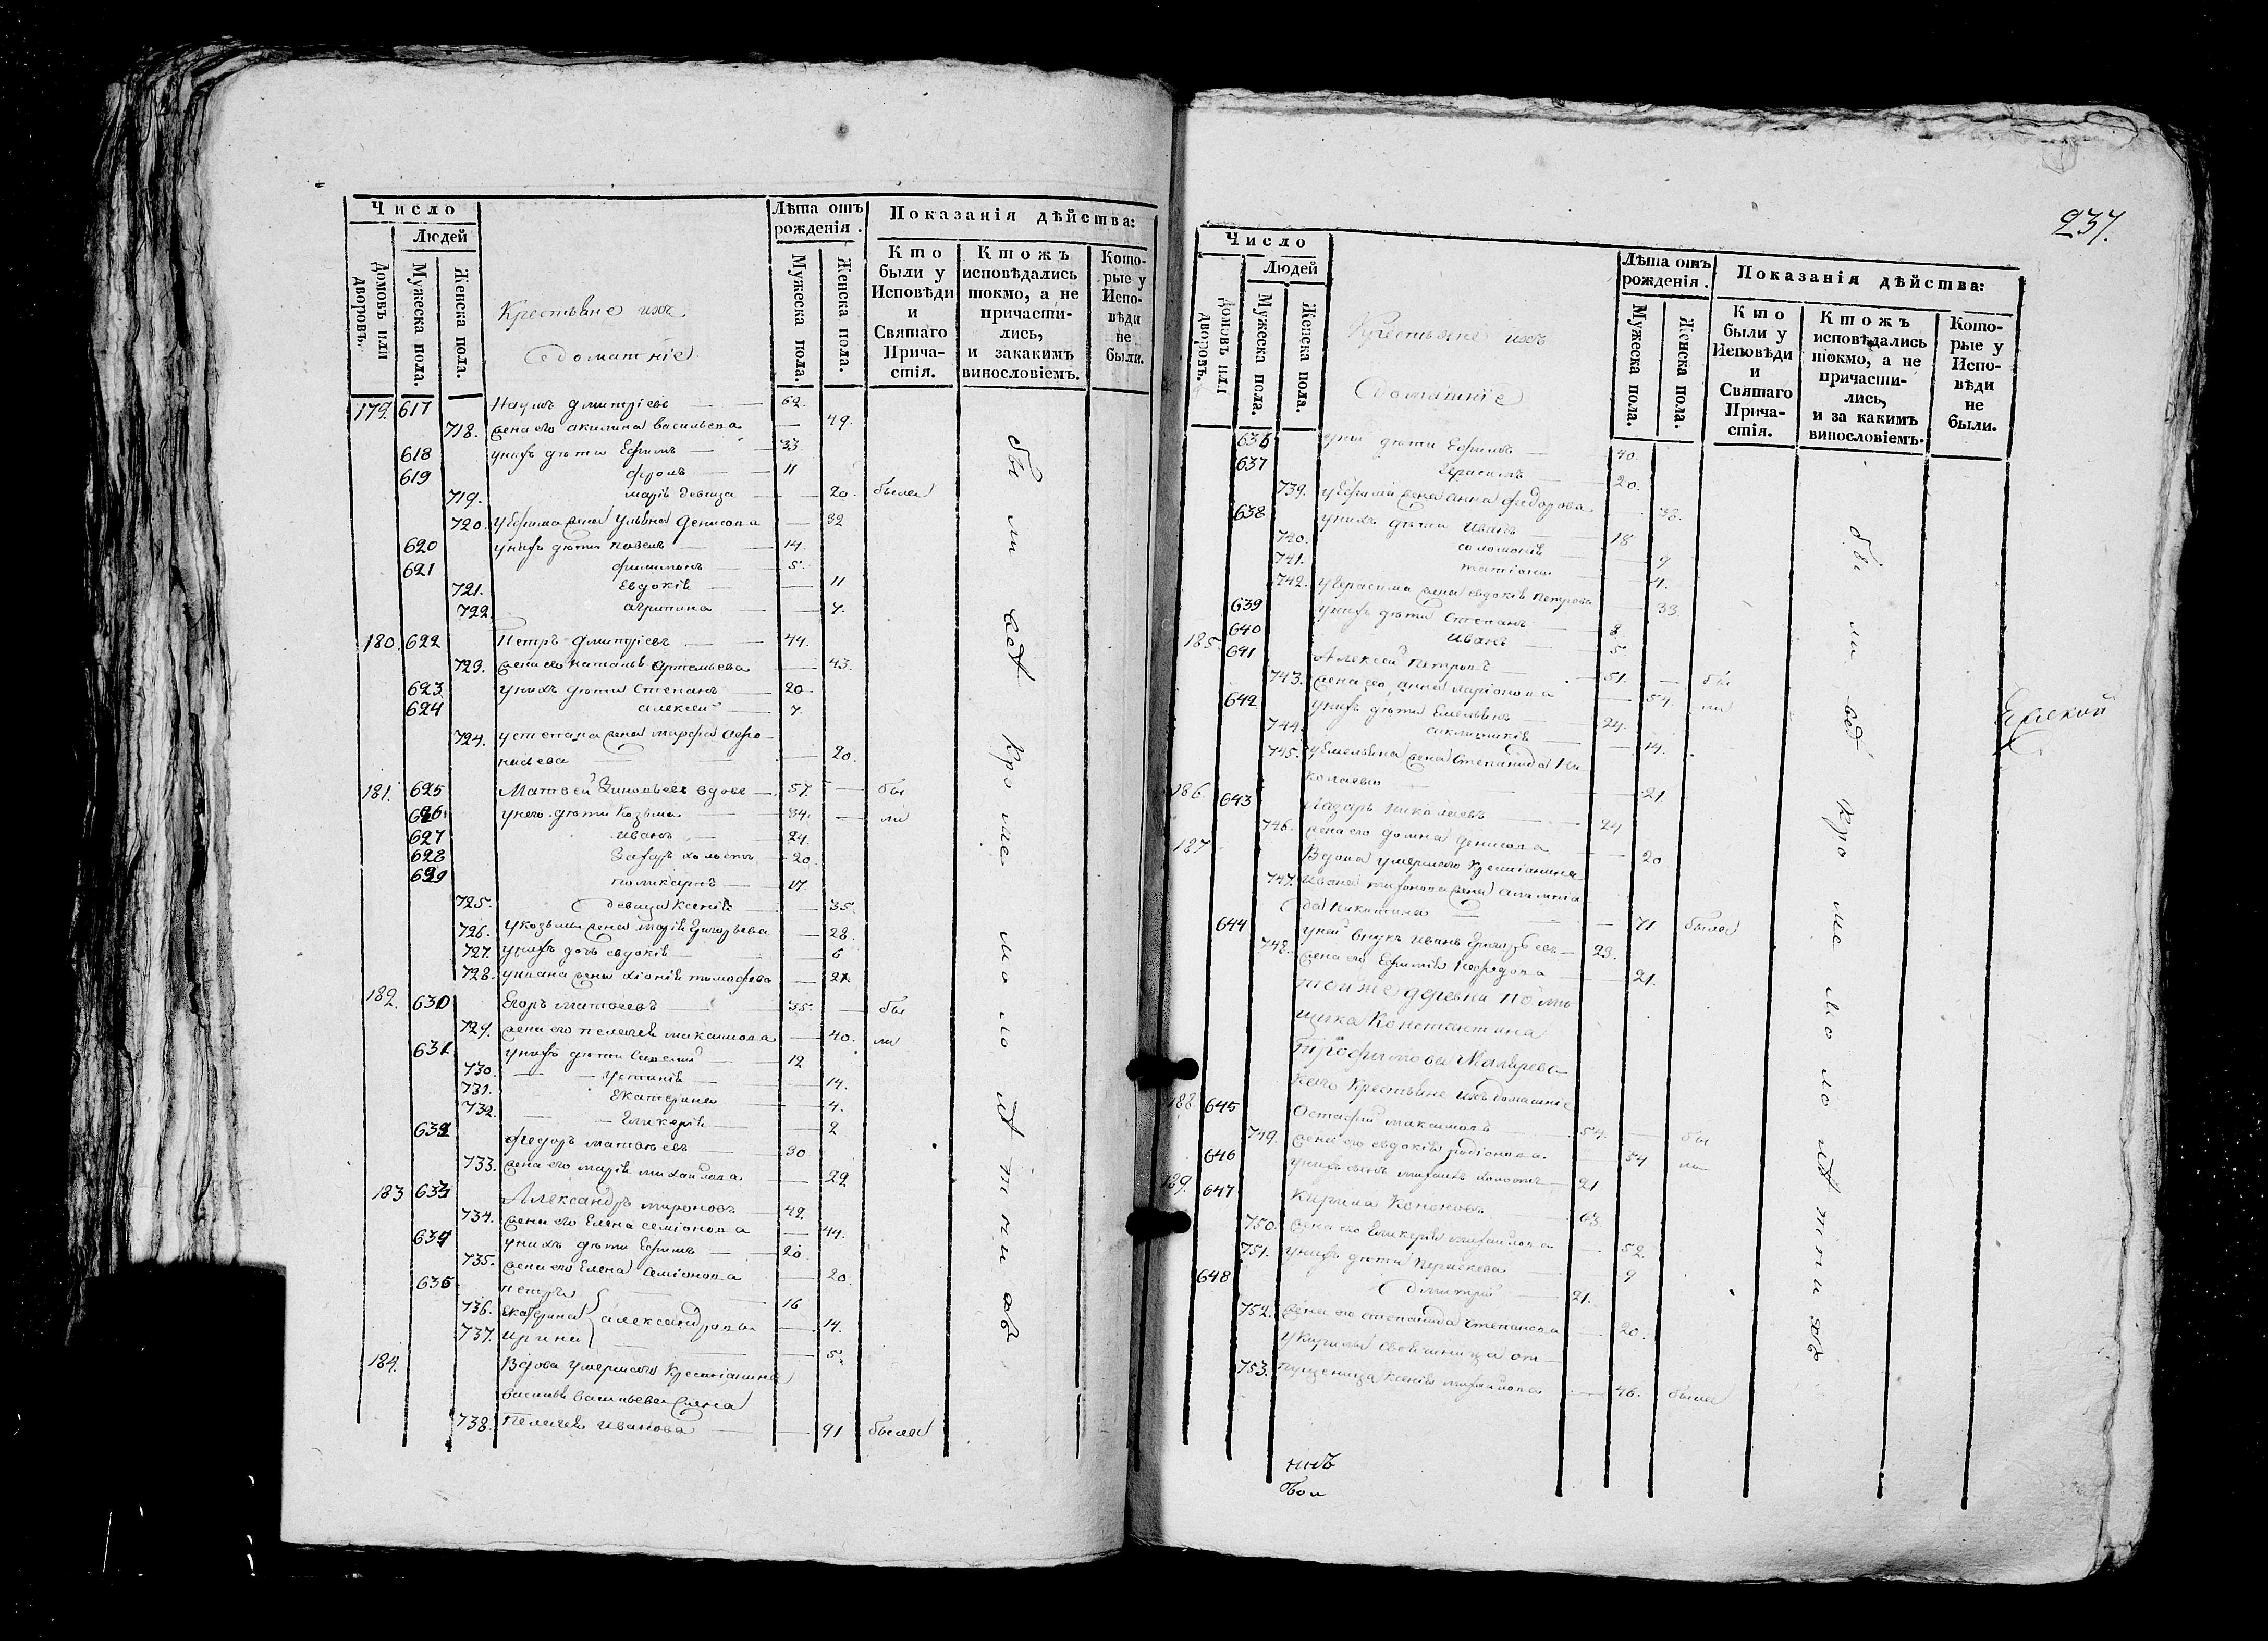 Число
Людей
Домовъ или дворовъ.
Мужеска пола.
Женска пола.
Крестьяне ихъ
домашніе
Лѣта отъ рожденія.
Мужеска пола.
Женска пола.
Показанія дѣйства:
Кто были у Исповѣди и Святаго Причастія.
Ктожъ исповѣдались токмо, а не причастились, и закакимъ винословіемъ.
Которые у Исповѣди не были.
179. 617 Наумъ Дмитріевъ 62.
718. жена его акилина васильева 49.
618 унихъ дѣти Ефимъ 33
619 фролъ 11
719. марія девица 20. была
720. уефима жена ульяна Денисова 32
620 унихъ дѣти павелъ 14.
621 филимонъ 5.
721. Евдокія 11
722. агрипина 7.
180. 622 Петръ Дмитріевъ 44.
723. жена его наталья Артемьева 43.
623. унихъ дѣти Степанъ 20
624 алексей 7.
724. устепана жена марфа афо-
насьева 20.
181. 625 Матвей Зиновьевъ вдовъ 57. бы
626 унего дѣти Козьма 34. ли
627 иванъ 24.
628 Захаръ холостъ 20
629 поликарпъ 17.
725. девица Ксенія 35.
726. укозьмы жена марія григорьева 28.
727. унихъ дочь евдокія 6
728. уивана жена хіонія тимофеева 24
182. 630 Егоръ матвеевъ 35. бы
729. жена его пелагея максимова 40. ли
631 унихъ дѣти савелий 12
730. Устинія 14.
731. Екатерина 4.
732. Гликерія 2
632 Федоръ матвѣевъ 30
733. жена его марія михайлова 29
183. 633 Александръ мироновъ 49.
734. жена его Елена семіонова 44.
634 унихъ дѣти Ефимъ 20
735. жена его Елена Семіонова 20.
635 петръ 16
736. екатерина александровы 14.
737. ирина 5.
184. Вдова умершаго крестіанина
василья васильева жена
738. Пелагея иванова 91 была
были всѣ кроме мало лѣтнихъ
237.
Число
Людей
Домовъ или дворовъ.
Мужеска пола.
Женска пола.
Крестьяне ихъ
домашніе
Лѣта отъ рожденія.
Мужеска пола.
Женска пола.
Показанія дѣйства:
Кто были у Исповѣди и Святаго Причастія.
Ктожъ исповѣдались токмо, а не причастились, и за какимъ винословіемъ.
Которые у Исповѣди не были.
636 унихъ дѣти Ефимъ 40.
637 герасимъ 20.
739. уефима жена анна федорова 38.
638 унихъ дѣти иванъ 18
740. соломонія 9
741. татіана 4.
742. угерасима жена евдокія петрова 33.
639 унихъ дѣти Степанъ 8.
640 иванъ 5
185. 641 Алексей Петровъ 51. бы
743. жена его анна 54. ли
642 унихъ дѣти Емельянъ 24.
744. 14.
745. уемельяна жена Степанида ни-
колаева 21.
186 643 Лазарь николаевъ 24
746. жена его Домна Денисова 20
187 Вдова умершаго крестіанина
747. ивана жена
никитина 71 была
644 уней внукъ иванъ григорьевъ 23.
748. жена его Ефимія 21.
тойже деревни поме-
щика Константина
Трофимова
крестьяне ихъ домашніе
188 645 Остафий максимовъ 54. бы
749. жена его евдокія родіонова 54 ли
646 унихъ сынъ холостъ 21
189. 647 Кирила Кононовъ 63.
750. жена его Гликерія михайлова 52.
751. унихъ дѣти параскева 9
648 Дмитрий 21.
752. жена его степанида Степанова 20.
укирилы от-
753. пущеница ксенія михайлова 46. была
были всѣ кроме мало лѣтнихъ